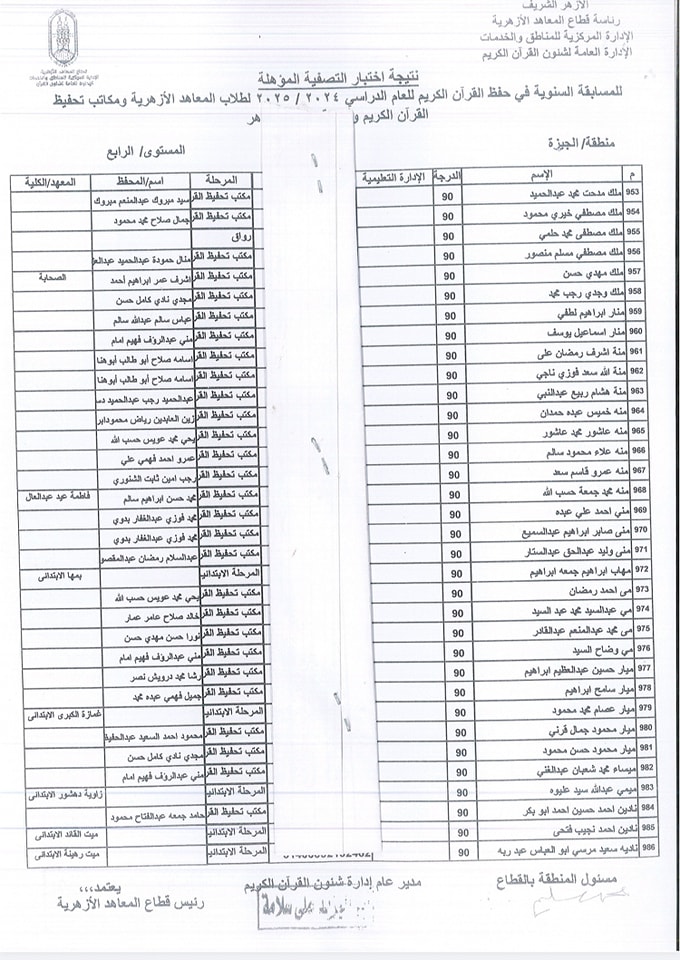 الأزهر الشريف
رئاسة قطاع المعاهد الأزهرية
الإدارة المركزية للمناطق والخدمات
الإدارة العامة لشئون القرآن الكريم
نتيجة اختبار التصفية المؤهلة
للمسابقة السنوية في حفظ القرآن الكريم للعام الدراسي ٢٠٢٤ / ٢٠٢٥ لطلاب المعاهد الأزهرية ومكاتب تحفيظ
القرآن الكريم و هر
منطقة/ الجيزة المستوى/ الرابع
م الإسم الدرجة الإدارة التعليمية المرحلة اسم/المحفظ المعهد/الكلية
953 ملك مدحت محمد عبدالحميد 90 مكتب تحفيظ القر سيد مبروك عبدالمنعم مبروك
954 ملك مصطفي خيري محمود 90 مكتب تحفيظ القر جمال صلاح محمد محمود
955 ملك مصطفى محمد حلمي 90 رواق
956 ملك مصطفي مسلم منصور 90 مكتب تحفيظ القر منال حمودة عبدالحميد عبدالعز
957 ملك مهدي حسن 90 مكتب تحفيظ القر اشرف عمر ابراهيم احمد الصحابة
958 ملك وجدي رجب محمد 90 مكتب تحفيظ القر مجدي نادي كامل حسن
959 منار ابراهيم لطفي 90 مكتب تحفيظ القر عباس سالم عبدالله سالم
960 منار اسماعيل يوسف 90 مكتب تحفيظ القر مني عبدالرؤف فهيم امام
961 منة اشرف رمضان على 90 مكتب تحفيظ القر اسامه صلاح أبو طالب أبوهنا
962 منة الله سعد فوزي ناجي 90 مكتب تحفيظ القر اسامه صلاح أبو طالب أبوهنا
963 منة هشام ربيع عبدالنبي 90 مكتب تحفيظ القر عبدالحميد رجب عبدالحميد دس
964 منه خميس عبده حمدان 90 مكتب تحفيظ القر زين العابدين رياض محمودابر
965 منه عاشور محمد عاشور 90 مكتب تحفيظ القر يحي محمد عويس حسب الله
966 منه علاء محمود سالم 90 مكتب تحفيظ القر عمرو احمد فهمي علي
967 منه عمرو قاسم سعد 90 مكتب تحفيظ القر رجب امين ثابت الشنوري
968 منه محمد جمعة حسب الله 90 مكتب تحفيظ القر محمد حسن ابراهيم سالم فاطمة عيد عبدالعال
969 مني احمد علي عبده 90 مكتب تحفيظ القر محمد فوزي عبدالغفار بدوي
970 منى صابر ابراهيم عبدالسميع 90 مكتب تحفيظ القر محمد فوزي عبدالغفار بدوي
971 منى وليد عبدالحق عبدالستار 90 مكتب تحفيظ القر عبدالسلام رمضان عبدالمقصو
972 مهاب ابراهيم جمعه ابراهيم 90 المرحلة الابتدائي بمها الابتدائى
973 مى احمد رمضان 90 مكتب تحفيظ القر يحي محمد عويس حسب الله
974 مي عبدالسيد محمد عبد السيد 90 مكتب تحفيظ القر خالد صلاح عامر عمار
975 مى محمد عبدالمنعم عبدالقادر 90 مكتب تحفيظ القر نورا حسن مهدي حسن
976 مي وضاح السيد 90 مكتب تحفيظ القر مني عبدالرؤف فهيم امام
977 ميار حسين عبدالعظيم ابراهيم 90 مكتب تحفيظ القر رشا محمد درويش نصر
978 ميار سامح ابراهيم 90 مكتب تحفيظ القر جميل فهمي عبده محمد
979 ميار عصام محمد محمود 90 المرحلة الابتدائي غمازة الكبرى الابتدائى
980 ميار محمود جمال قرني 90 مكتب تحفيظ القر محمود احمد السعيد عبدالحفيظ
981 ميار محمود حسن محمود 90 مكتب تحفيظ القر مجدي نادي كامل حسن
982 ميساء محمد شعبان عبدالغني 90 مكتب تحفيظ القر مني عبدالرؤف فهيم امام
983 ميمي عبدالله سيد عليوه 90 المرحلة الابتدائي زاوية دهشور الابتدائى
984 نادين احمد حسين احمد ابو بكر 90 مكتب تحفيظ القر حامد جمعه عبدالفتاح محمود
985 نادين احمد نجيب فتحى 90 المرحلة الابتدائي ميت القائد الابتدائى
986 ناديه سعيد مرسي ابو العباس عبد ربه 90 المرحلة الابتدائي ميت رهينة الابتدائى
مسئول المنطقة بالقطاع مدير عام إدارة شئون القرآن الكريم يعتمد،،،
رئيس قطاع المعاهد الأزهرية